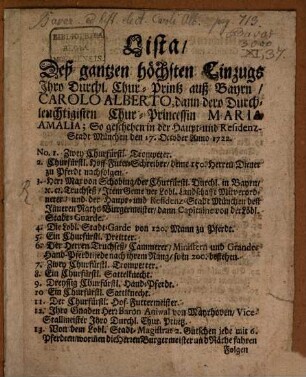 Bavar.
BIBLIOTHECA
REGIA
MONACENSIS.
Lista /
Deß gantzen höchsten Einzugs
Ihro Durchl. Chur-Printz auß Bayrn /
CAROLO ALBERTO, dann dero Durch-
leuchtigisten Chur-Princessin MARIA
AMALIA; So geschehen in der Haupt- und Residenz-
Stadt München den 17. October Anno 1722.
No. 1. Zwey Churfürstl. Trompeter.
2. Churfürstl. Hoff-Futer-Schreiber / deme 150. Herren Diener
zu Pferde nachfolgen.
3. Herr Max von
&c. &c. Truchseß /
und der Haupt- und Residenz-Stadt München deß
Jnneren Raths Burgermeister / dann Capitaine von der Löbl.
Stadt-Guarde.
4. Die Löbl. Stadt-Garde von 120. Mann zu Pferde.
5. Ein Churfürstl. Bereitter.
6. Die Herren Truchseß / Cammerer / Ministern und Grandes
Hand-Pferdt jede nach ihrem Rang / so in 200. bestehen.
7. Zwey Churfürstl. Trompetter.
8. Ein Churfürstl. Sattelknecht.
9. Dreyssig Churfürstl. Hand-Pferde.
10. Ein Churfürstl. Sattelknecht.
11. Der Churfürstl. Hof-Futtermeister.
12. Ihro Gnaden Herr Baron
Stallmeister Ihro Durchl. Chur-Printz.
13. Von dem Löbl. Stadt-Magistrat 2. Gutschen jede mit 6.
Pferden / worinn die Herren Burgermeister und Räthe fahren
Folgen